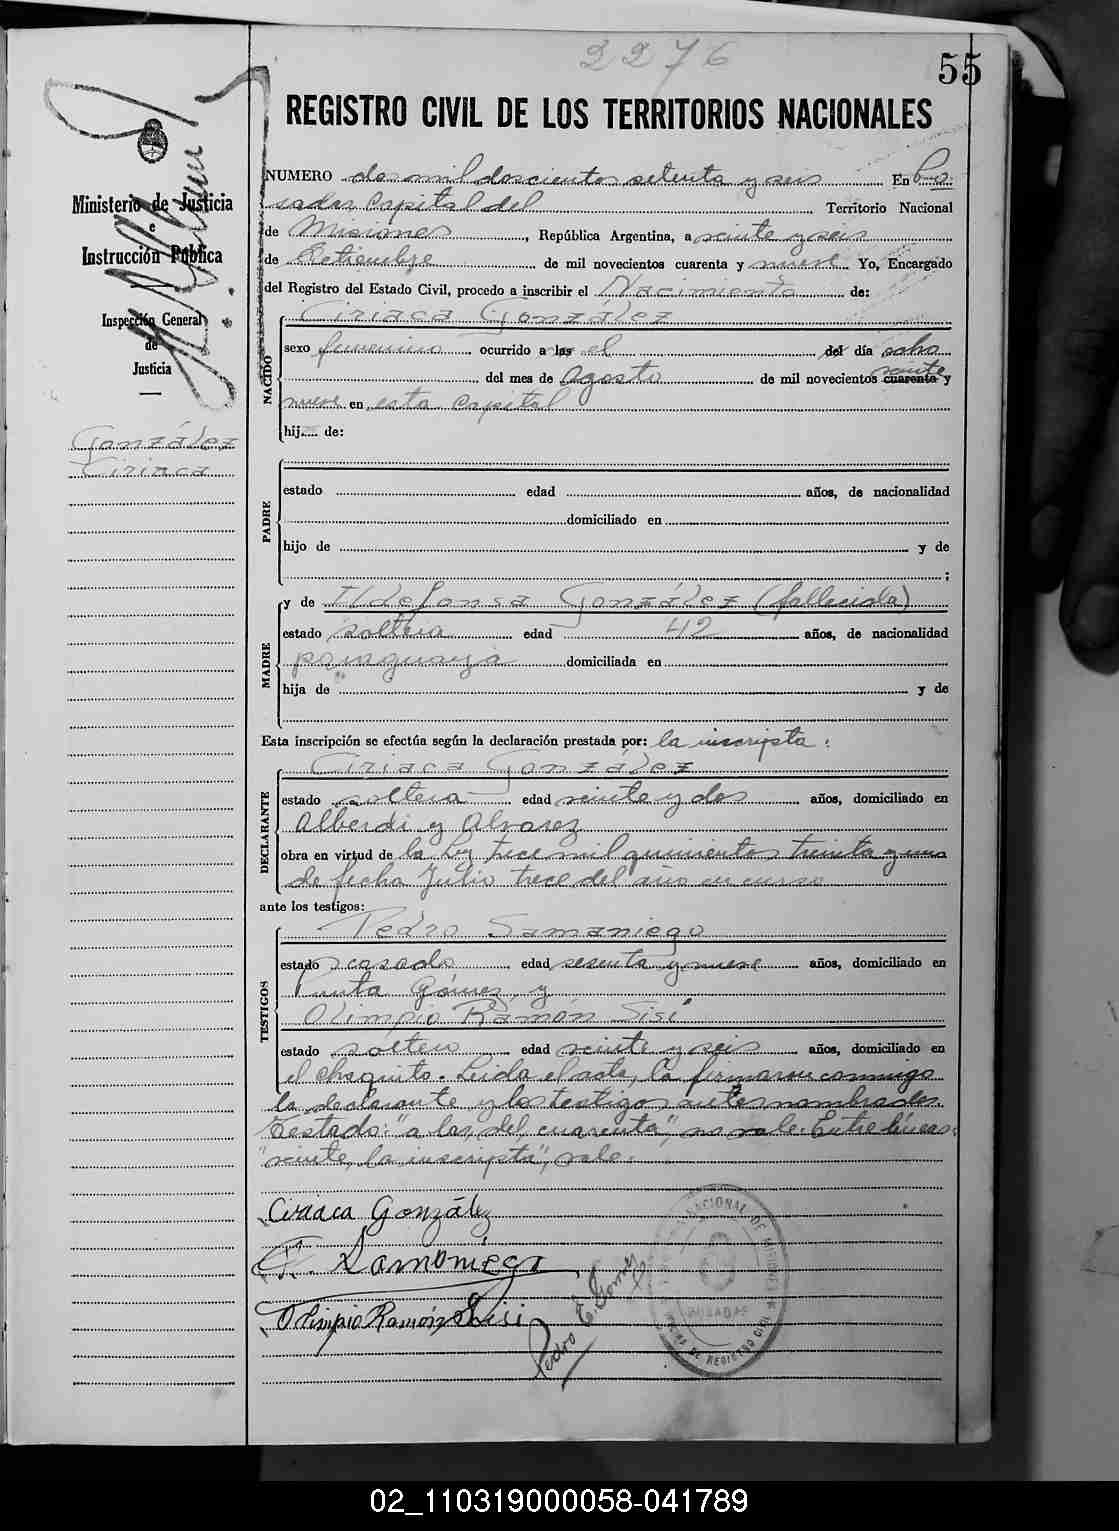 2276
55
REGISTRO CIVIL DE LOS TERRITORIOS NACIONALES
Ministerio de Justicia
e
Instrucción Pública
Inspección General
de
Justicia
González
Ciriaca
NUMERO dos mil doscientos setenta y seis En Po-
sadas Capital del Territorio Nacional
de Misiones, República Argentina, a veinte y seis
de Setiembre de mil novecientos cuarenta y nueve Yo, Encargado
del Registro del Estado Civil, procedo a inscribir el Nacimiento de:
NACIDO
Ciriaca González
sexo femenino ocurrido a las el del día ocho
veinte
del mes de Agosto de mil novecientos cuarenta y
nueve en esta Capital
hij de:
PADRE
estado edad años, de nacionalidad
domiciliado en
hijo de y de
;
MADRE
y de Ildefonsa González (fallecida)
estado soltera edad 42 años, de nacionalidad
paraguaya domiciliada en
hija de y de
Esta inscripción se efectúa según la declaración prestada por: la inscripta:
DECLARANTE
Ciriaca González
estado soltera edad veinte y dos años, domiciliado en
Alberdi y Alvarez
obra en virtud de la Ley trece mil quinientos treinta y uno
de fecha Julio trece del año en curso
ante los testigos:
TESTIGOS
Pedro Samaniego
estado casado edad sesenta y nueve años, domiciliado en
Punta Gómez y
Olimpio Ramón Sisi
estado soltero edad veinte y seis años, domiciliado en
el Chaquito. Leida el acta, la firmaron conmigo
la declarante y los testigos antes nombrados.
Testado: "a las, del, cuarenta", no vale. Entre líneas:
"veinte, la inscripta", vale.
Ciriaca González
P. Samaniego
Olimpio Ramón Sisi
Pedro E. Gomez
NACIONAL DE MISIONES
POSADAS
OFICINA DE REGISTRO CIVIL
02_110319000058-041789